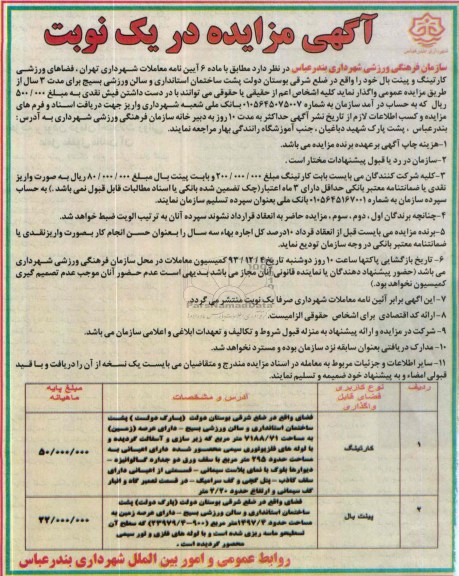 آگهی مزایده در یک نوبت
سازمان فرهنگی ورزشی شهرداری بندرعباس در نظر دارد مطابق با ماده ۶ آیین نامه معاملات شهرداری تهران ، فضاهای ورزشی
کارتینگ و پینت بال خود را واقع در ضلع شرقی بوستان دولت پشت ساختمان استانداری و سالن ورزشی بسیج برای مدت ۳ سال از
طریق مزایده عمومی واگذار نماید کلیه اشخاص اعم از حقیقی یا حقوقی می توانند با در دست داشتن فیش نقدی به مبلغ ۵۰۰/۰۰۰
ریال که به حساب در آمد سازمان به شماره ۰۱۰۵۶۴۵۰۷۵۰۰۷ بانک ملی شعبه شهرداری واریز جهت دریافت اسناد و فرم های
مزایده و کسب اطلاعات لازم از تاریخ نشر آگهی حداکثر به مدت ۱۰ روز به دبیر خانه سازمان فرهنگی ورزشی شهرداری به آدرس :
بندرعباس ، پشت پارک شهید دباغیان ، جنب آموزشگاه رانندگی بهار مراجعه نمایند.
۱-هزینه چاپ آگهی برعهده برنده مزایده می باشد.
۲-سازمان در رد یا قبول پیشنهادات مختار است .
۳-کلیه شرکت کنندگان می بایست بابت کارتینگ مبلغ ۲۰۰/۰۰۰/۰۰۰ و بابت پینت بال مبلغ ۸۰/۰۰۰/۰۰۰ ریال به صورت واریز
نقدی یا ضمانتنامه معتبر بانکی حداقل دارای ۳ ماه اعتبار(چک تضمین شده بانکی یا اسناد مطالبات قابل قبول نمی باشد .) به حساب
سپرده سازمان به شماره ۰۱۰۵۶۴۵۱۶۷۰۰۱ بانک ملی بعنوان سپرده تسلیم سازمان نمایند.
۴-چنانچه برندگان اول ، دوم ، سوم ، مزایده حاضر به انعقاد قرارداد نشوند سپرده آنان به ترتیب الویت ضبط خواهد شد.
۵-برنده مزایده می بایست قبل از انعقاد قرارداد ۱۰درصد کل اجاره بهاء سه سال را بعنوان حسن انجام کار بصورت واریزنقدی یا
ضمانتنامه معتبر بانکی در وجه سازمان تودیع نماید.
۶- تاریخ بازگشایی پاکتها ساعت ۱۰ روز دوشنبه تاریخ ۹۳/۱۲/۴ کمیسیون معاملات در محل سازمان فرهنگی ورزشی شهرداری
می باشد (حضور پیشنهاد دهندگان یا نماینده قانونی آنان مجاز می باشد بدیهی است عدم حضور آنان موجب عدم تصمیم گیری
کمیسیون نخواهد بود.)
۷-این آگهی برابر آئین نامه معاملات شهرداری صرفا یک نوبت منتشر می گردد.
۸-ارائه کد اقتصادی برای اشخاص حقوقی الزامیست.
۹-شرکت در مزایده و ارائه پیشنهاد به منزله قبول شروط و تکالیف و تعهدات ابلاغی و اعلامی سازمان می باشد.
۱۰-مدارک دریافتی بعنوان سابقه نزد سازمان بوده و مسترد نخواهد شد.
۱۱- سایر اطلاعات و جزئیات مربوط به معامله در اسناد مزایده مندرج و متقاضیان می بایست یک نسخه از آن را دریافت و با قید
قبولی امضاء و به پیشنهاد خود ضمیمه و تسلیم نمایند.
ردیف نوع کاربری فضای قابل واگذاری آدرس و مشخصات مبلغ پایه ماهیانه
۱ کارتینگ ۵۰/۰۰۰/۰۰۰
فضای واقع در ضلع شرقی بوستان دولت (پارک دولت) پشت
ساختمان استانداری و سالن ورزشی بسیج - دارای عرصه (زمین)
به مساحت ۷۱۸۸/۷۱ متر مربع که زیر سازی و آسفالت گردیده و
با لوله های فلزیوتوری سیمی محصور شده دارای اعیانی به
مساحت حدود ۲۹۵ متر مربع با سقف وری دو جداره گالوانیزد -
دیوارها بلوک با نمای پلاست سیمانی - قسمتی از اعیانی دارای
سقف کاذب - پنل گچی و کف سرامیک - در قسمت تعمیر گاه و انبار
کف سیمانی و ارتفاع حدود ۲/۲۰ متر
۲ پینت بال ۲۲/۰۰۰/۰۰۰
فضای واقع در ضلع شرقی بوستان دولت (پارک دولت) پشت
ساختمان استانداری و سالن ورزشی بسیج - دارای عرصه زمین به
مساحت حدود ۱۴۹۷/۴ متر مربع (۹۰۰-۲۳۹۷۹/۴) که سطح آن
تسطیحو ماسه ریزی شده است و با لوله های فلزی و تور سیمی
محصور گردیده است .
روابط عمومی و امور بین الملل شهرداری بندرعباس